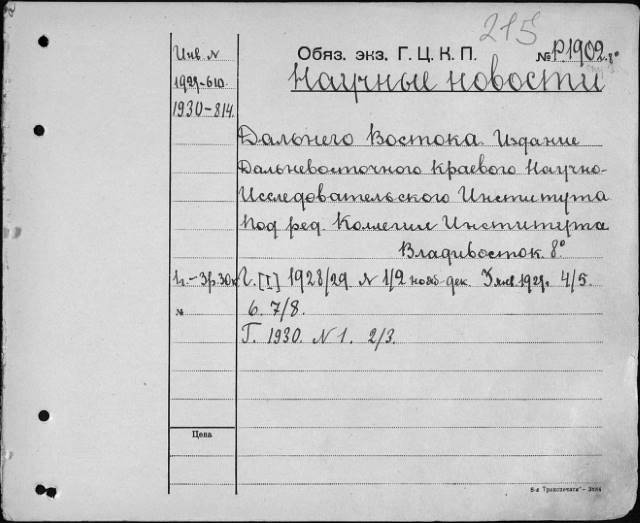 215
Инв. N
Обяз. экз. Г. Ц. К. П.
№ Р1902. 8°
1929-610.
Научные новости
1930-814.
Дальнего Востока. Издание
Дальневосточного краевого Научно-
Исследовательского Института
Под ред. Коллегии Института
Владивосток. 8°
ц.-3р.30к
Г. [I] 1928/29 N 1/2 нояб-дек. 3 янв. 1929г. 4/5.
№
6. 7/8.
Г. 1930. N 1. 2/3.
Цена